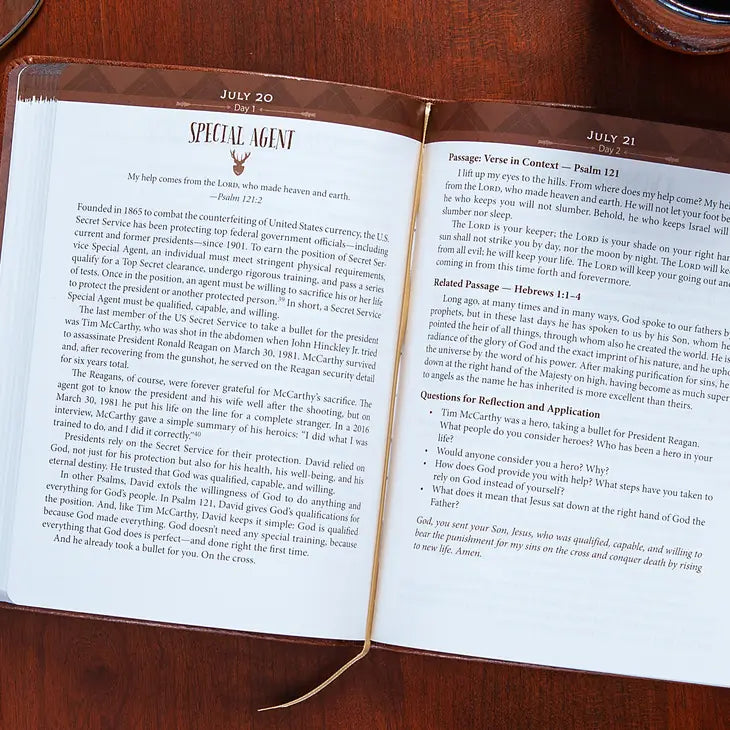 JULY 20
Day 1
SPECIAL AGENT
My help comes from the LORD, who made heaven and earth.
—Psalm 121:2
Founded in 1865 to combat the counterfeiting of United States currency, the U.S.
Secret Service has been protecting top federal government officials—including
current and former presidents—since 1901. To earn the position of Secret Ser-
vice Special Agent, an individual must meet stringent physical requirements,
qualify for a Top Secret clearance, undergo rigorous training, and pass a series
of tests. Once in the position, an agent must be willing to sacrifice his or her life
to protect the president or another protected person.39 In short, a Secret Service
Special Agent must be qualified, capable, and willing.
The last member of the US Secret Service to take a bullet for the president
was Tim McCarthy, who was shot in the abdomen when John Hinckley Jr. tried
to assassinate President Ronald Reagan on March 30, 1981. McCarthy survived
and, after recovering from the gunshot, he served on the Reagan security detail
for six years total.
The Reagans, of course, were forever grateful for McCarthy's sacrifice. The
agent got to know the president and his wife well after the shooting, but on
March 30, 1981 he put his life on the line for a complete stranger. In a 2016
interview, McCarthy gave a simple summary of his heroics: "I did what I was
trained to do, and I did it correctly."40
Presidents rely on the Secret Service for their protection. David relied on
God, not just for his protection but also for his health, his well-being, and his
eternal destiny. He trusted that God was qualified, capable, and willing.
In other Psalms, David extols the willingness of God to do anything and
everything for God's people. In Psalm 121, David gives God's qualifications for
the position. And, like Tim McCarthy, David keeps it simple: God is qualified
because God made everything. God doesn't need any special training, because
everything that God does is perfect—and done right the first time.
And he already took a bullet for you. On the cross.
JULY 21
Day 2
Passage: Verse in Context — Psalm 121
I lift up my eyes to the hills. From where does my help come? My he
from the LORD, who made heaven and earth. He will not let your foot be
he who keeps you will not slumber. Behold, he who keeps Israel will
slumber nor sleep.
The LORD is your keeper; the LORD is your shade on your right han
sun shall not strike you by day, nor the moon by night. The LORD will ke
from all evil; he will keep your life. The LORD will keep your going out an
coming in from this time forth and forevermore.
Related Passage — Hebrews 1:1–4
Long ago, at many times and in many ways, God spoke to our fathers b
prophets, but in these last days he has spoken to us by his Son, whom he
pointed the heir of all things, through whom also he created the world. He is
radiance of the glory of God and the exact imprint of his nature, and he upho
the universe by the word of his power. After making purification for sins, he
down at the right hand of the Majesty on high, having become as much super
to angels as the name he has inherited is more excellent than theirs.
Questions for Reflection and Application
• Tim McCarthy was a hero, taking a bullet for President Reagan.
What people do you consider heroes? Who has been a hero in your
life?
• Would anyone consider you a hero? Why?
• How does God provide you with help? What steps have you taken to
rely on God instead of yourself?
• What does it mean that Jesus sat down at the right hand of God the
Father?
God, you sent your Son, Jesus, who was qualified, capable, and willing to
bear the punishment for my sins on the cross and conquer death by rising
to new life. Amen.